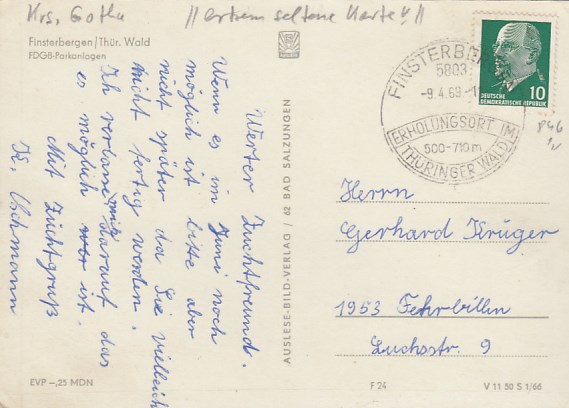 Krs. Gotha
//extrem seltene Karte!!//
Finsterbergen/Thür. Wald
FDGB-Parkanlagen
Werter Zuchtfreund.
Wenn es im Juni noch
möglich ist bitte aber
nicht später da Sie vielleicht
nicht fertig werden.
Ich verlasse mich darauf das
es möglich wer ist.
Mit Zuchtgruß
K. Uschmann
AUSLESE-BILD-VERLAG / 62 BAD SALZUNGEN
FINSTERBERGEN
5803
-9.4.68-
ERHOLUNGSORT IM
500-710m
THÜRINGER WALD
DEUTSCHE
DEMOKRATISCHE REPUBLIK
10
Herrn
Gerhard Krüger
1953 Fehrbillin
Luchsstr. 9
EVP -,25 MDN
F 24
V 11 50 S 1/66